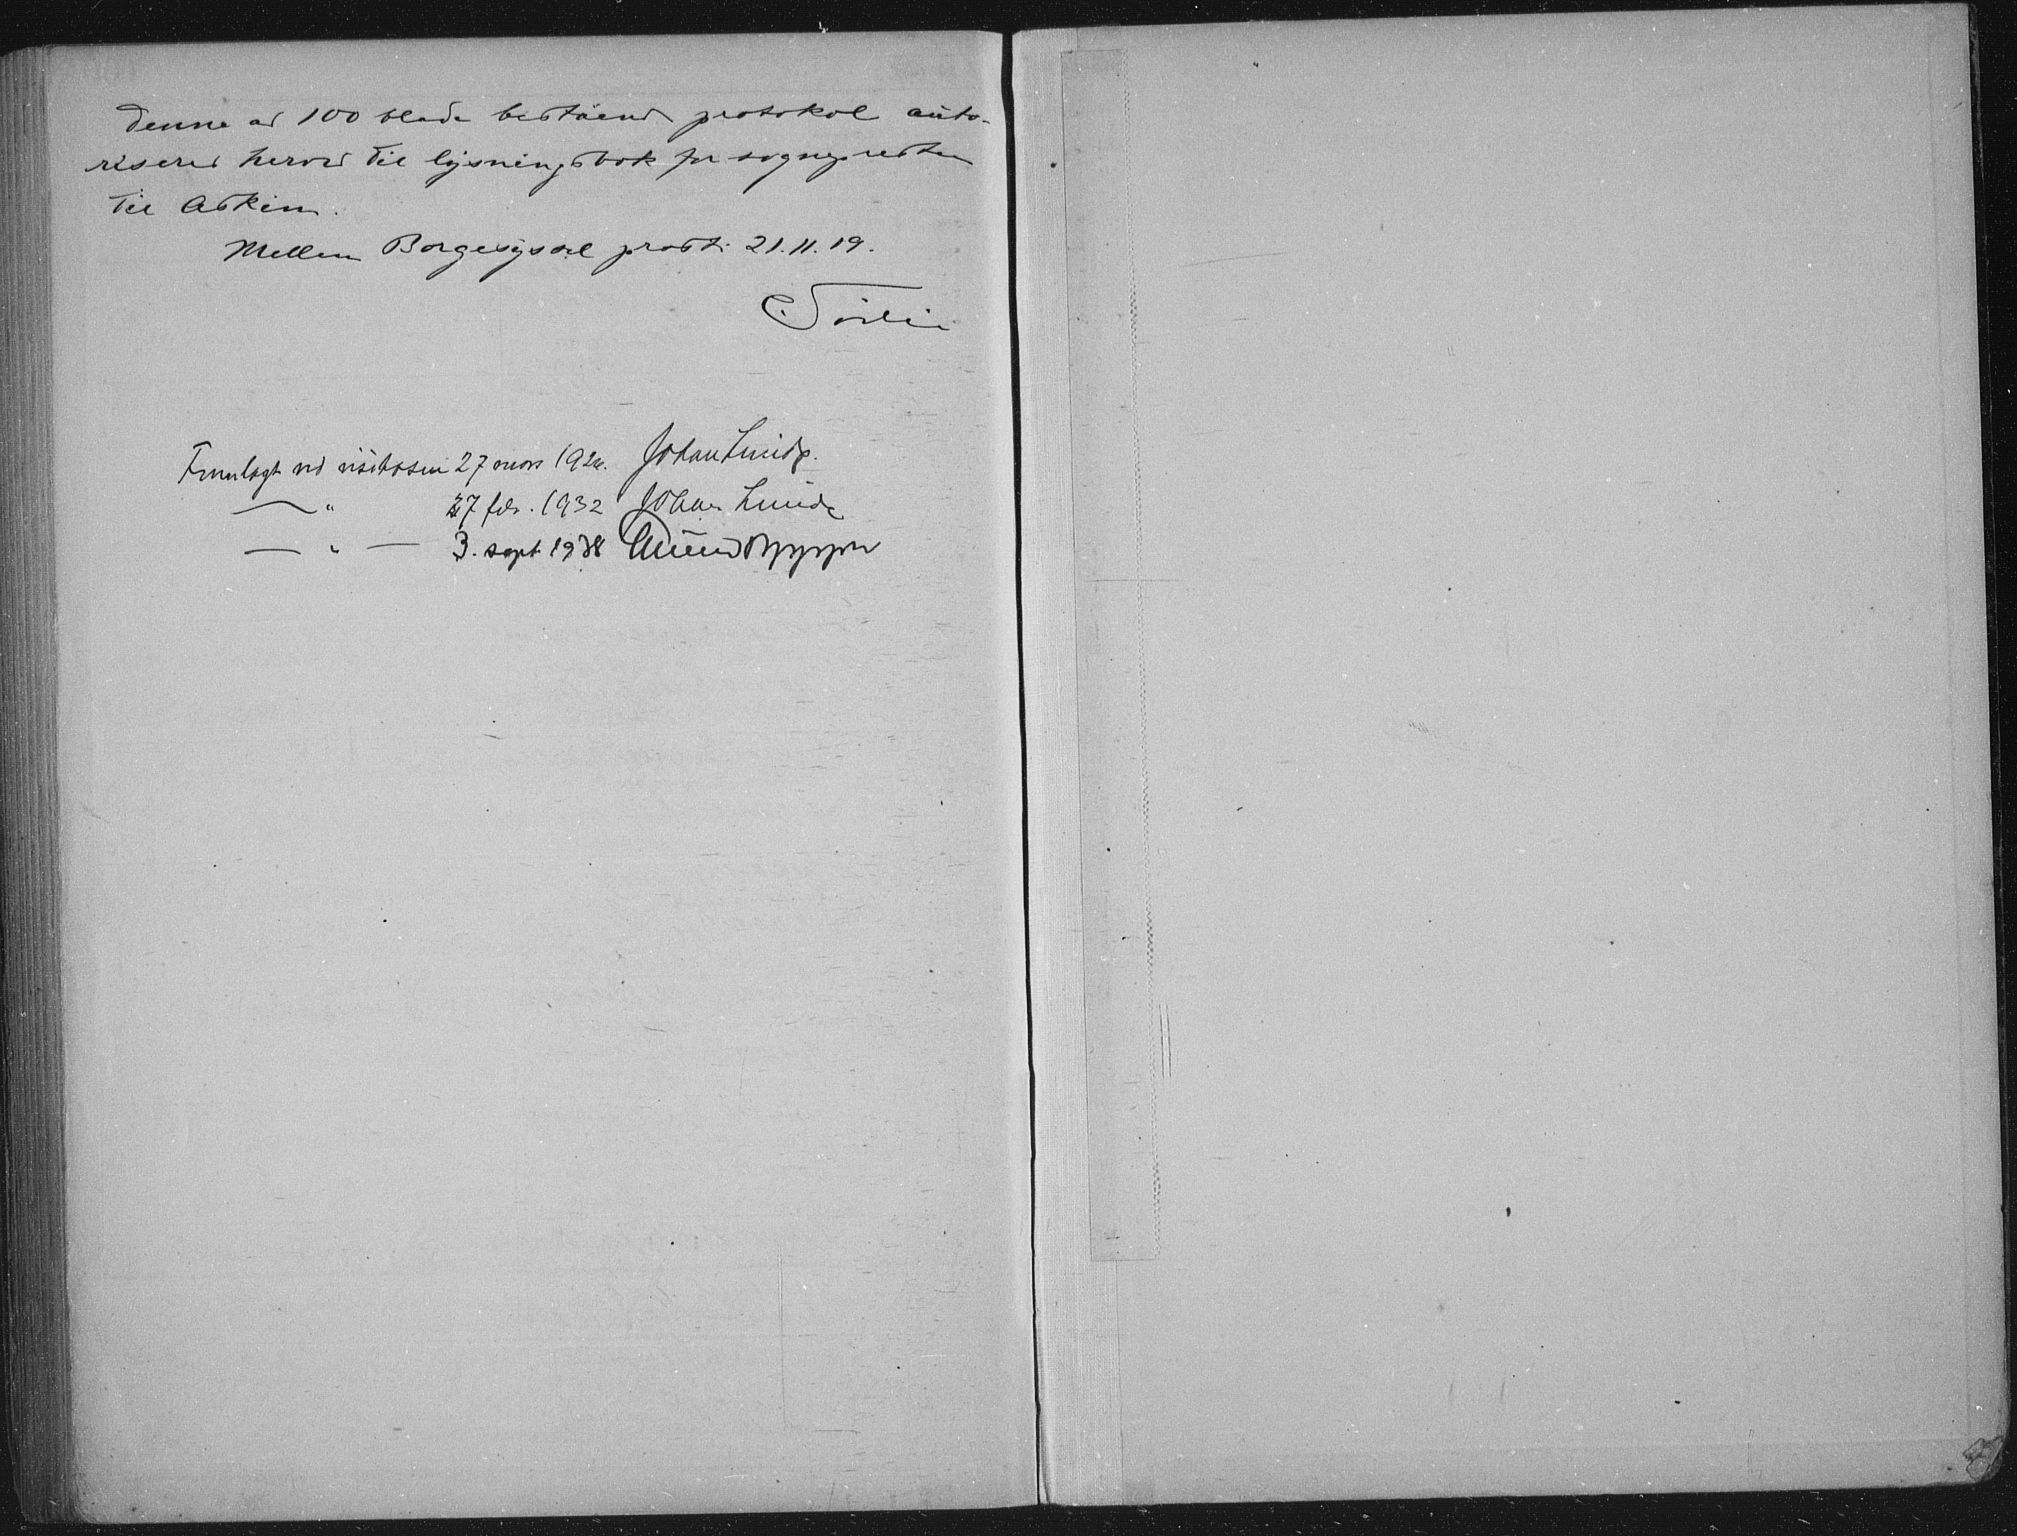 Denne av 100 blade bestående protokol auto-
riseres herved til lysningsbok for sognepresten
til Askim.
Mellem Borgesyssel prosti 21.11.19.
C.
Fremlagt ved visitasen 27 mars 192 Johan Lunde.
— " 27 febr. 1932 Johan Lunde
— " — 3. sept 1938